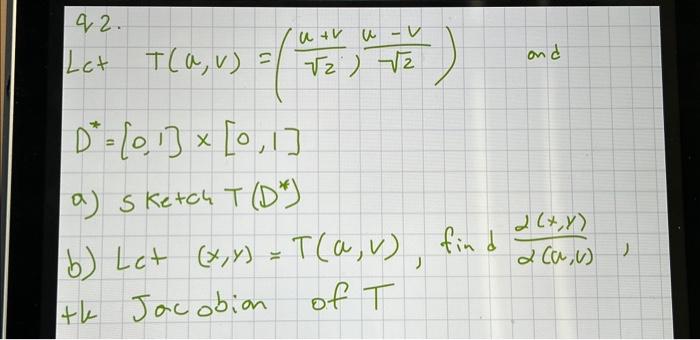 q 2.
Let T(u,v) = ( u+v/√2 , u-v/√2 ) and
D* = [0,1] × [0,1]
a) sketch T(D*)
b) Let (x,y) = T(u,v), find ∂(x,y)/∂(u,v) ,
the Jacobian of T